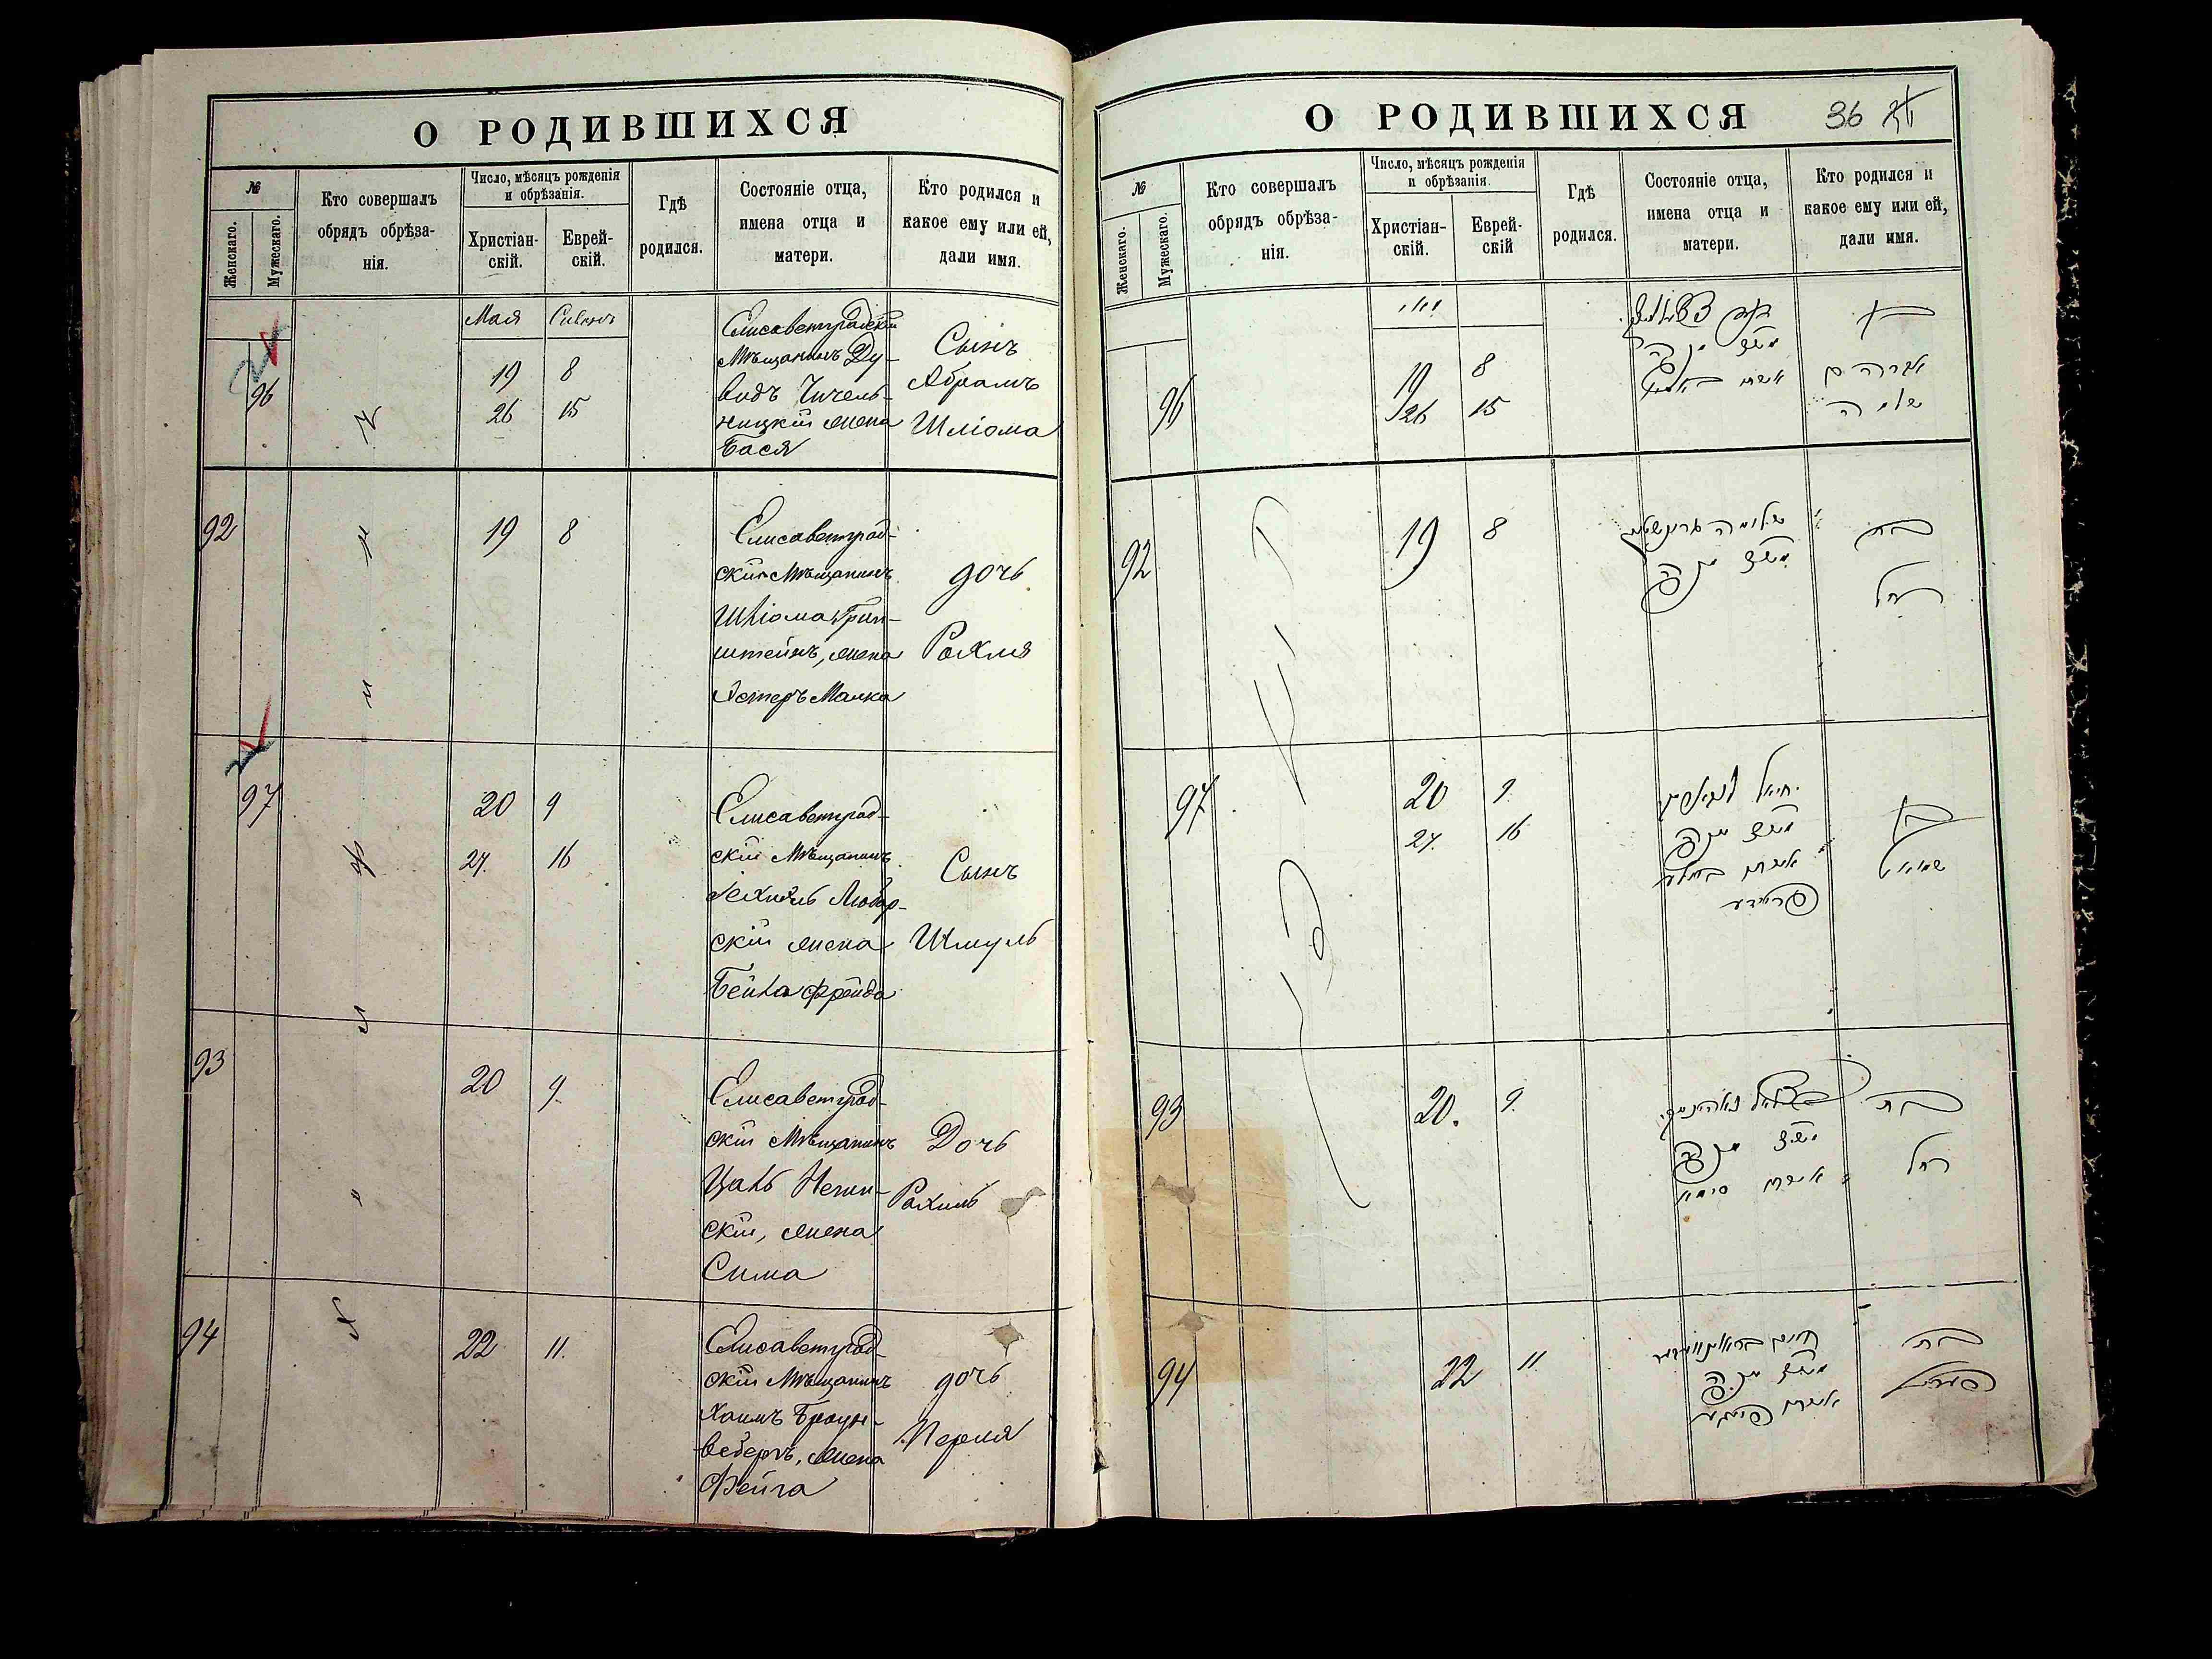 О РОДИВШИХСЯ
№
Женскаго.
Мужескаго.
Кто совершалъ
обрядъ обрѣза-
нія.
Число, мѣсяцъ рожденія
и обрѣзанія.
Христіан-
скій.
Еврей-
скій.
Гдѣ
родился.
Состояніе отца,
имена отца и
матери.
Кто родился и
какое ему или ей,
дали имя.
96
Мая Сиванъ
19 8
26 15
Елисаветградскій
Мѣщанинъ Ду-
видъ Чичель-
ницкій жена
Бася
Сынъ
Абрамъ
Шліома
92
19 8
Елисаветград-
скій Мѣщанинъ
Шліома Грин-
штейнъ, жена
Эстеръ Малка
дочь
Рахля
97
20 9
27. 16
Елисаветград-
скій Мѣщанинъ
Іехиель Любар-
скій жена
Бейла Фрейда
Сынъ
Шмуль
93
20 9.
Елисаветград-
скій Мѣщанинъ
скій, жена
Сима
Дочь
Рахиль
94
22 11.
Елисаветград-
скій Мѣщанинъ
Хаимъ Браун-
веберъ, жена
Фейга
дочь
Перля
О РОДИВШИХСЯ
36
№
Женскаго.
Мужескаго.
Кто совершалъ
обрядъ обрѣза-
нія.
Число, мѣсяцъ рожденія
и обрѣзанія.
Христіан-
скій.
Еврей-
скій
Гдѣ
родился.
Состояніе отца,
имена отца и
матери.
Кто родился и
какое ему или ей,
дали имя.
96
19 8
26 15
בן
אברהם
שלמה
92
19 8
שלמה גרינשטיין
בת
רחל
97
20 9.
27. 16
יחיאל
אשתו ביילע
פריידע
בן
שמואל
93
20. 9.
אשתו סימא
בת
רחל
94
22 11
חיים
אשתו פייגע
בת
פערל